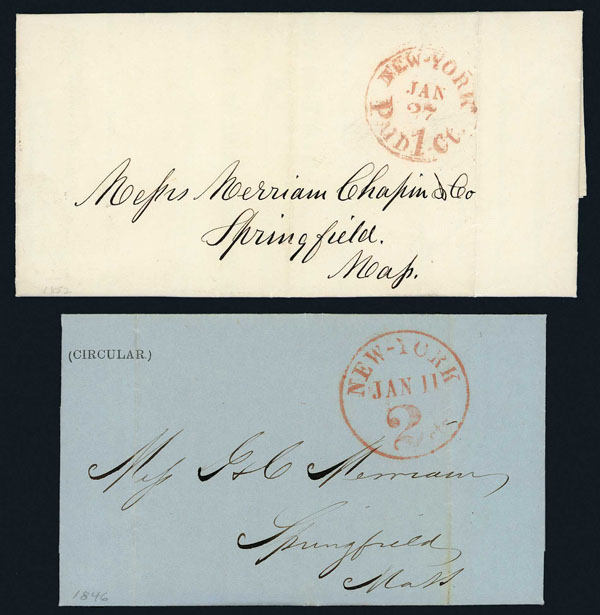 NEW-YORK
JAN
27
PAID 1 Ct.
Messrs Merriam Chapin & Co
Springfield.
Mass.
1852
(CIRCULAR.)
NEW-YORK
JAN 11
2 cts
Mess G & C Merriam
Springfield
Mass
1846